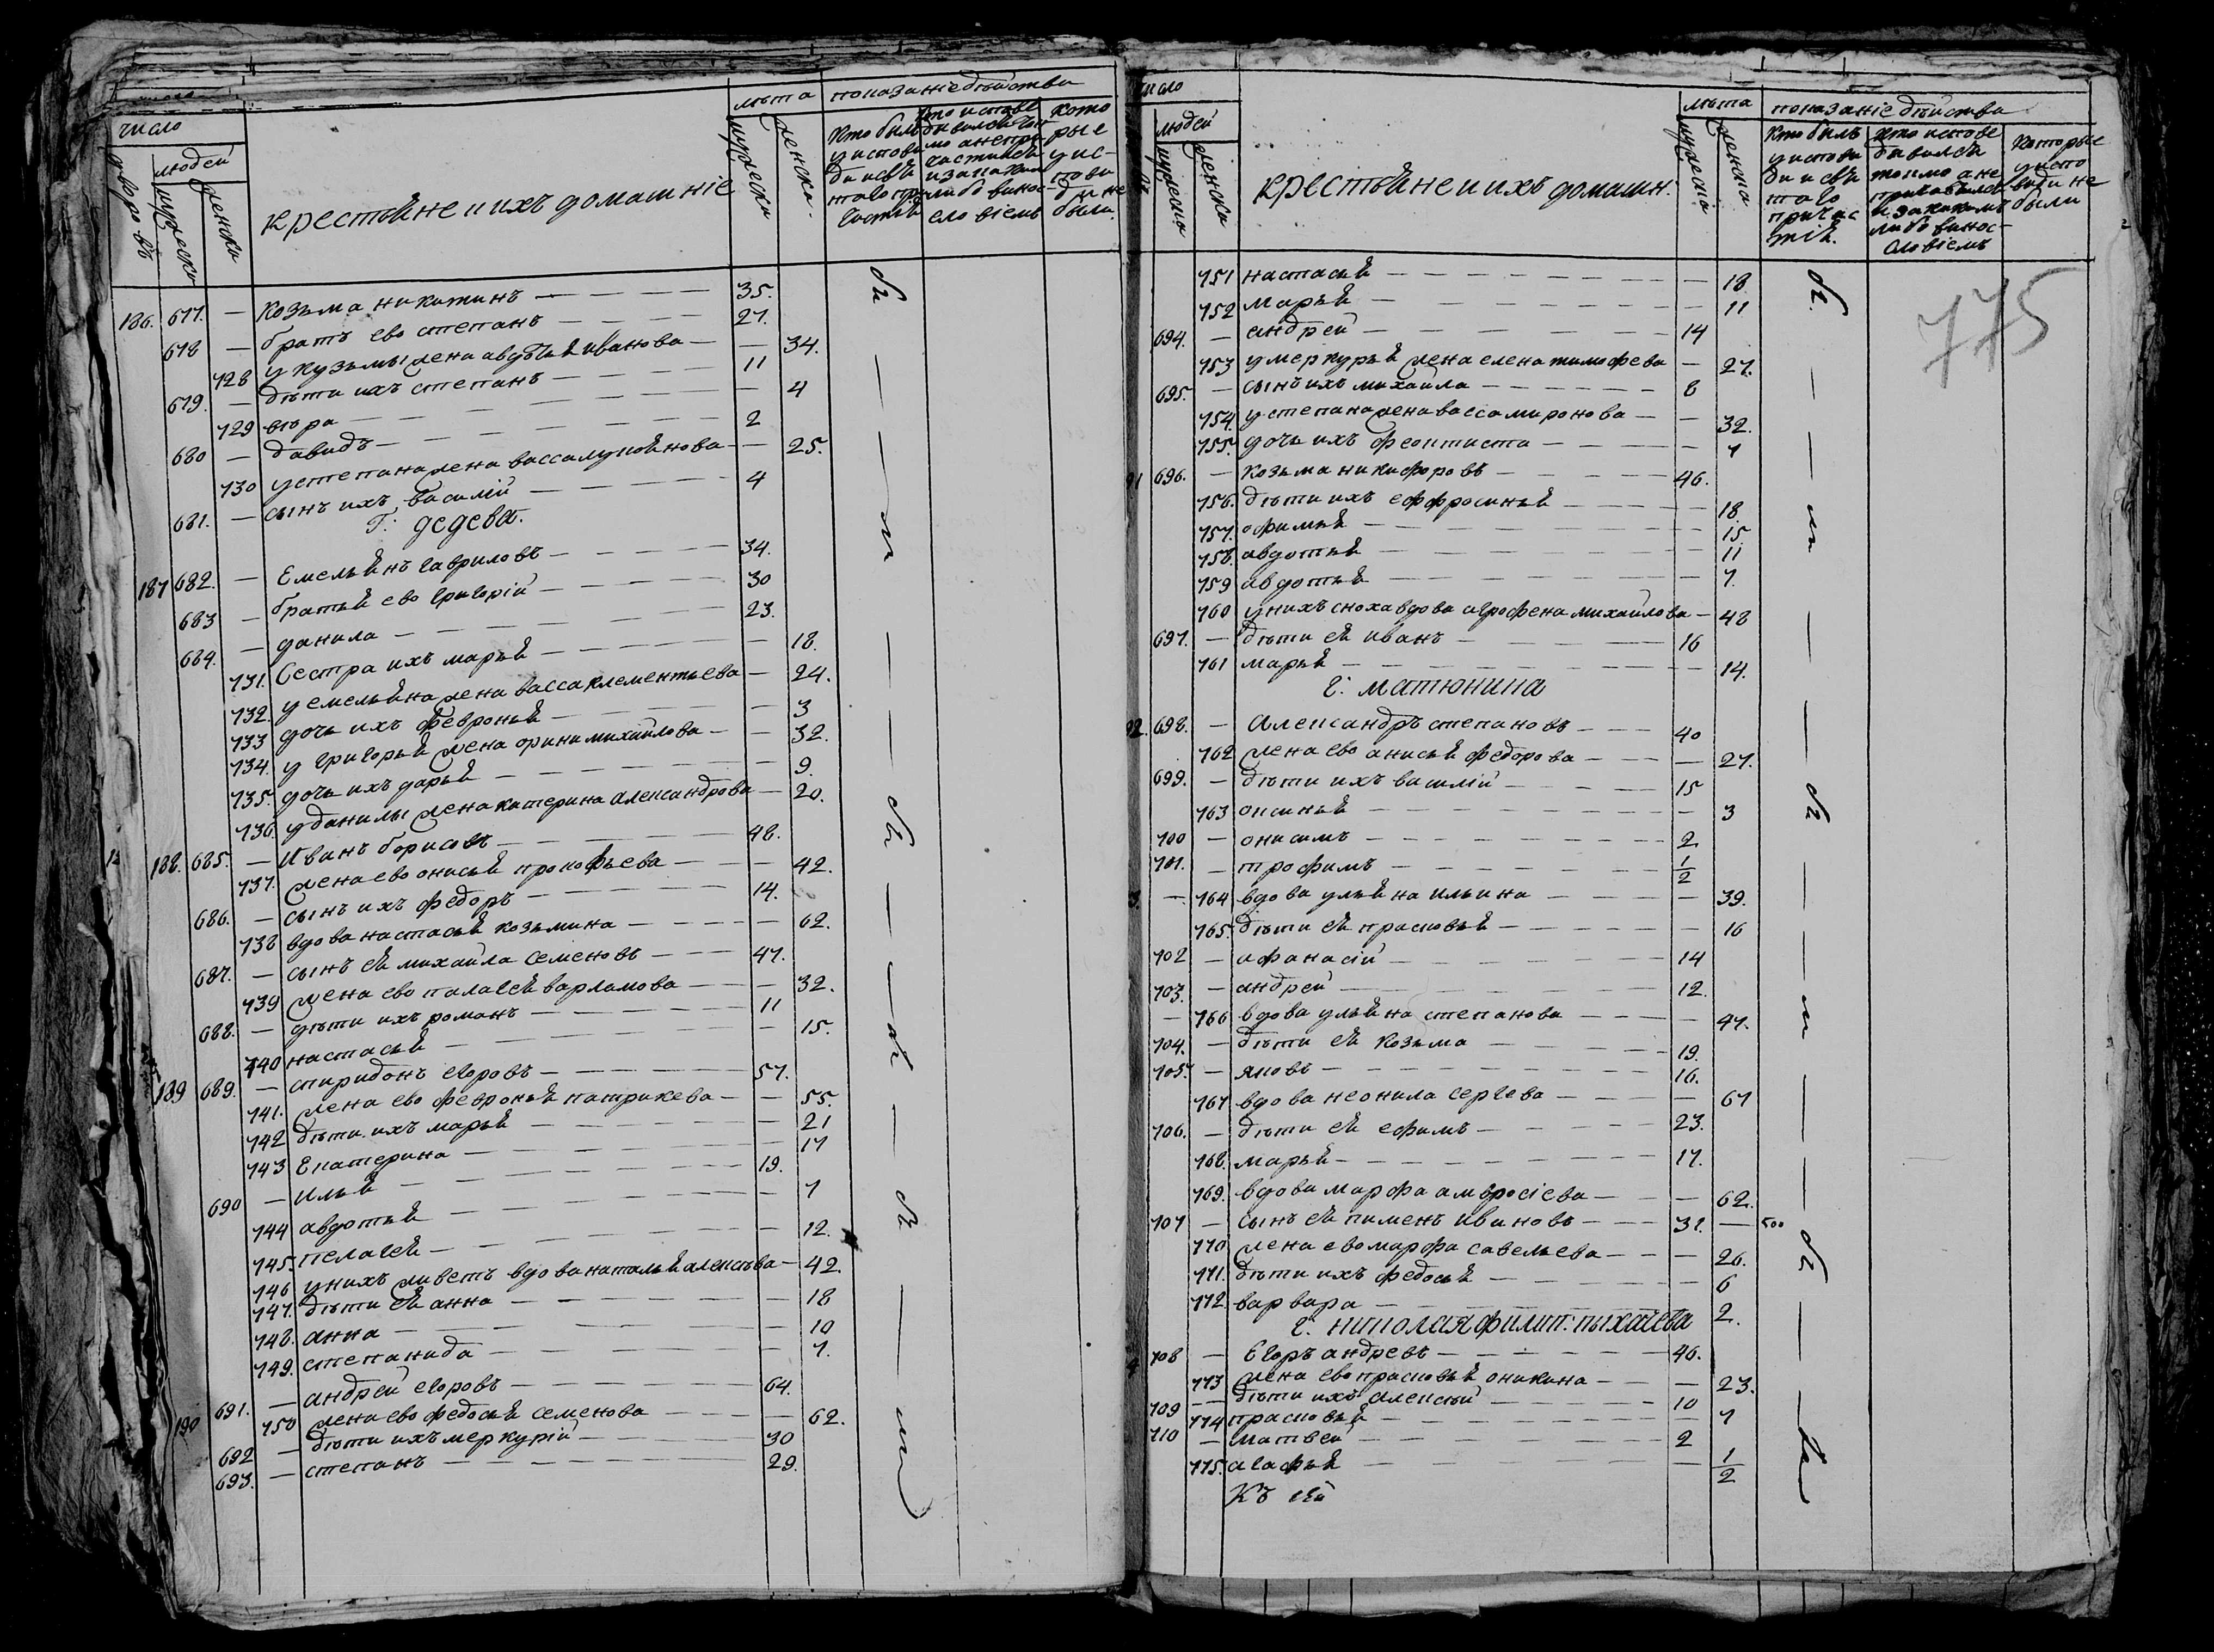 число
лѣта показанїе бытства
дворовъ
людей
мужеска
женска
крестьяне и ихъ домашнїе
мужеска
женска
Кто былъ у исповѣди и святаго причастїя
Кто исповѣдывался токмо а не причастился и за какимъ либо винословїемъ
Которые у исповѣди не были
186. 677. — Козьма никитинъ — 35.
678 — братъ ево степанъ — 27.
728 у кузьмы жена авдотья иванова — 34.
679. — дѣти ихъ степанъ — 11
729 вѣра — 4
680 — давидъ — 2
730 у степана жена васса лукоянова — 25.
681. — сынъ ихъ василїй — 4
Г: дедева.
187 682. — Емельянъ гавриловъ — 34.
683 — братья ево григорїй — 30
684. — данила — 23.
731. Сестра ихъ марья — 18.
732. у емельяна жена васса клементьева — 24.
733 дочь ихъ февронья — 3
734. у григорья жена орина михаилова — 32.
735. дочь ихъ дарья — 9.
736. у данилы жена катерина александрова — 20.
188. 685. — Иванъ борисовъ — 48.
737. жена ево онисья прокофьева — 42.
686. — сынъ ихъ федоръ — 14.
738 вдова настасья козьмина — 62.
687. — сынъ ея михаила семеновъ — 47.
739 жена ево палагея варламова — 32.
688. — дѣти ихъ романъ — 11
740 настасья — 15.
189 689. — спиридонъ егоровъ — 57.
741. жена ево февронья патрикева — 55.
742 дѣти ихъ марья — 21
743 Екатерина — 17
690 — илья — 19.
744 авдотья — 7
745. пелагея — 12.
746 у нихъ живетъ вдова наталья алексѣва — 42.
747. дѣти ея анна — 18
748. анна — 10
749. степанида — 7.
190 691. — андрей егоровъ — 64.
750 жена ево федосья семенова — 62.
692 — дѣти ихъ меркурїй — 30
693. — степанъ — 29.
число
людей
мужеска
женска
крестьяне и ихъ домашн.
лѣта показанїе бытства
мужеска
женска
Кто былъ у исповѣди и святаго причастїя.
Кто исповѣдывался токмо а не причастился и за какимъ либо винословїемъ
Которые у исповѣди не были
775
751 настасья — 18.
752 марья — 11
694. — андрей — 14
753 у меркурья жена елена тимофева — 27.
695. — сынъ ихъ михаила — 8
754. у степана жена васса миронова — 32.
755. дочь ихъ феоктиста — 7
91 696. — Козьма никифоровъ — 46.
756. дѣти ихъ еффросинья — 18.
757. офимья — 15.
758. авдотья — 11
759 авдотья — 7.
760 у нихъ сноха вдова агрофена михаилова — 48
697. — дѣти ея иванъ — 16
761 марья — 14.
г: матюнина
92. 698. — Александръ степановъ — 40
762 жена ево анисья федорова — 27.
699. — дѣти ихъ василїй — 15
763 оксинья — 3
700 — онисимъ — 2
701. — трофимъ — 1/2
3. — 764 вдова ульяна ильина — 39.
765. дѣти ея прасковья — 16
702 — афанасїй — 14
703. — андрей — 12.
— 766 вдова ульяна степанова — 47.
704. — дѣти ея козьма — 19.
705. — яковъ — 16.
767 вдова неонила сергева — 67
706. — дѣти ея ефимъ — 23.
768. марья — 17.
769. вдова марфа амвросїева — 62.
707 — сынъ ея пименъ ивановъ — 31. —
770 жена ево марфа савельева — 26.
771. дѣти ихъ федосья — 6
772. варвара — 2.
г. николая филип: пыхачева
4 708 — Егоръ андревъ — 46.
773 жена ево прасковья оникина — 23.
709 — дѣти ихъ алексѣй — 10
774 прасковья — 7
710 — матвей — 2
775. агафья — 1/2
Къ сей